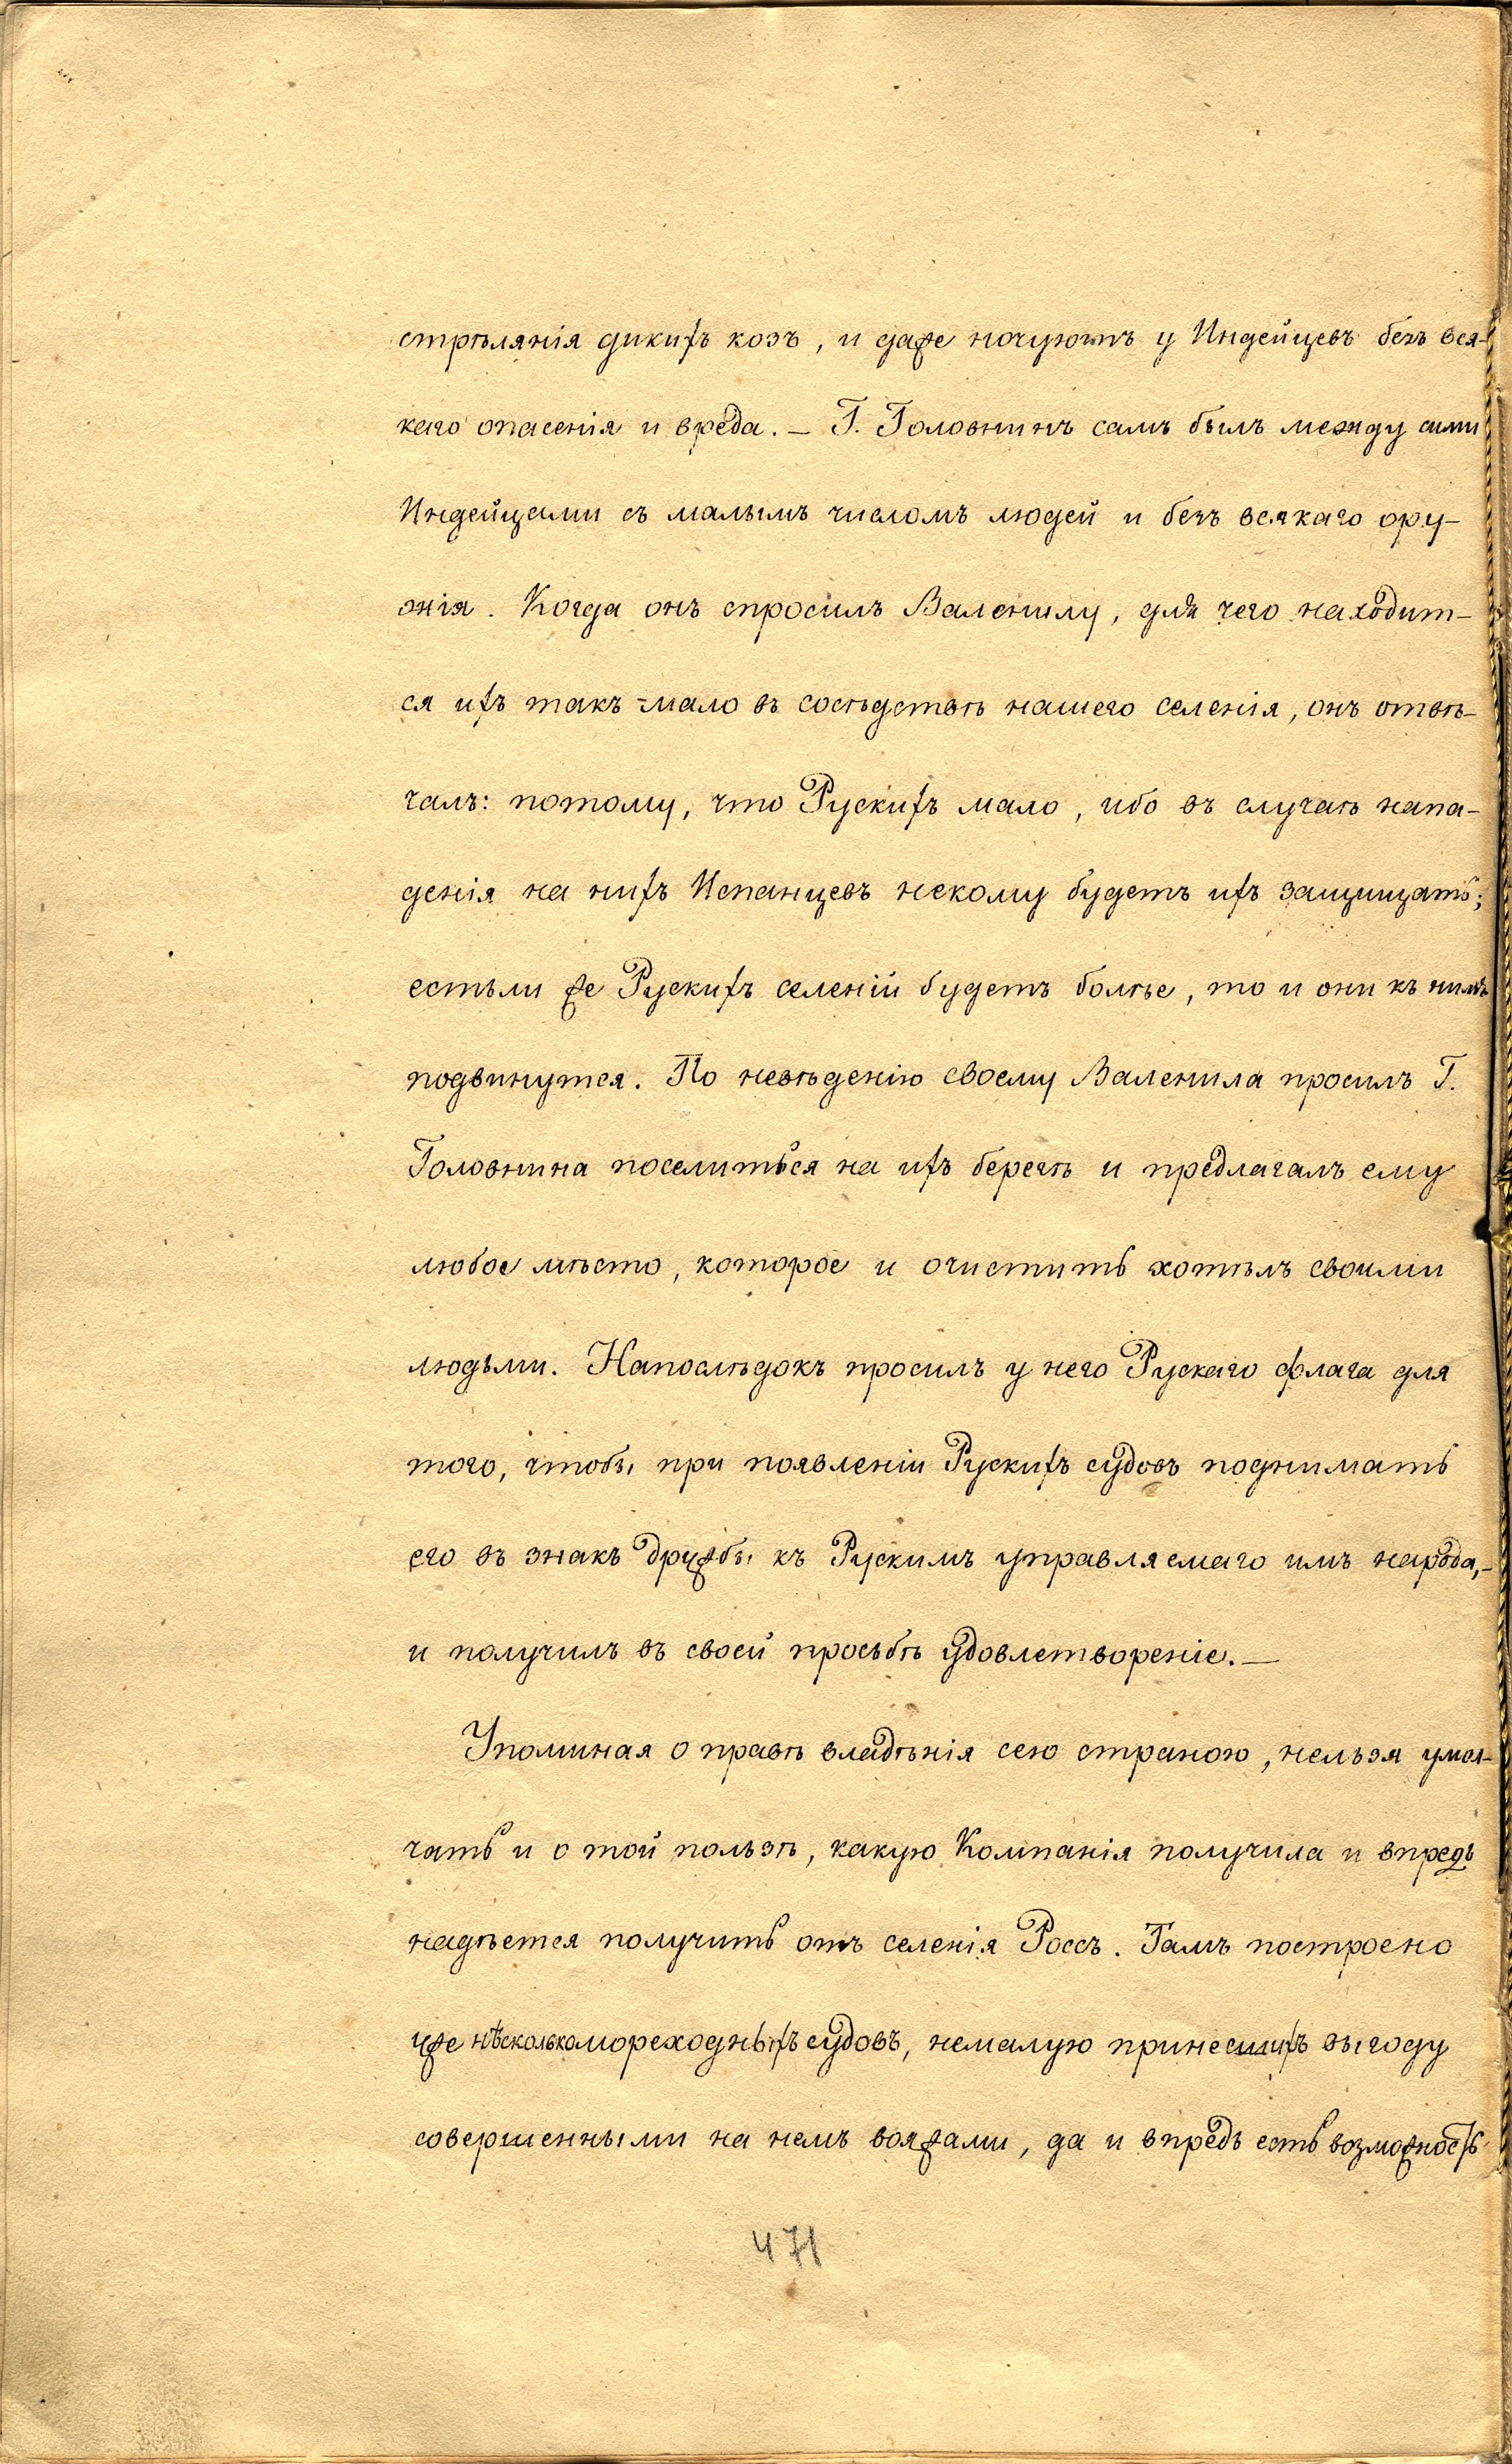 стрѣлянія дикихъ козъ, и даже ночуютъ у Индейцевъ безъ вся-
каго опасенія и вреда. — Г. Головнинъ самъ былъ между сими
Индейцами съ малымъ числомъ людей и безъ всякаго ору-
жія. Когда онъ спросилъ Валенилу, для чего находит-
ся ихъ такъ мало въ сосѣдствѣ нашего селенія, онъ отвѣ-
чалъ: потому, что Рускихъ мало, ибо въ случаѣ напа-
денія на нихъ Испанцевъ некому будетъ ихъ защищать;
естьли же Рускихъ селеній будетъ болѣе, то и они къ нимъ
подвинутся. По невѣденію своему Валенила просилъ Г.
Головнина поселиться на ихъ берегѣ и предлагалъ ему
любое мѣсто, которое и очистить хотѣлъ своими
людьми. Напослѣдокъ просилъ у него Рускаго флага для
того, чтобы при появленіи Рускихъ судовъ поднимать
его въ знакъ дружбы къ Рускимъ управляемаго имъ народа, –
и получилъ въ своей просьбѣ удовлетвореніе. —
Упоминая о правѣ владѣнія сею страною, нельзя умол-
чать и о той пользѣ, какую Компанія получила и впредь
надѣется получить отъ селенія Россъ. Тамъ построено
уже нѣсколько мореходныхъ судовъ, немалую принесшихъ выгоду
совершенными на немъ вояжами, да и впредь есть возможность
471